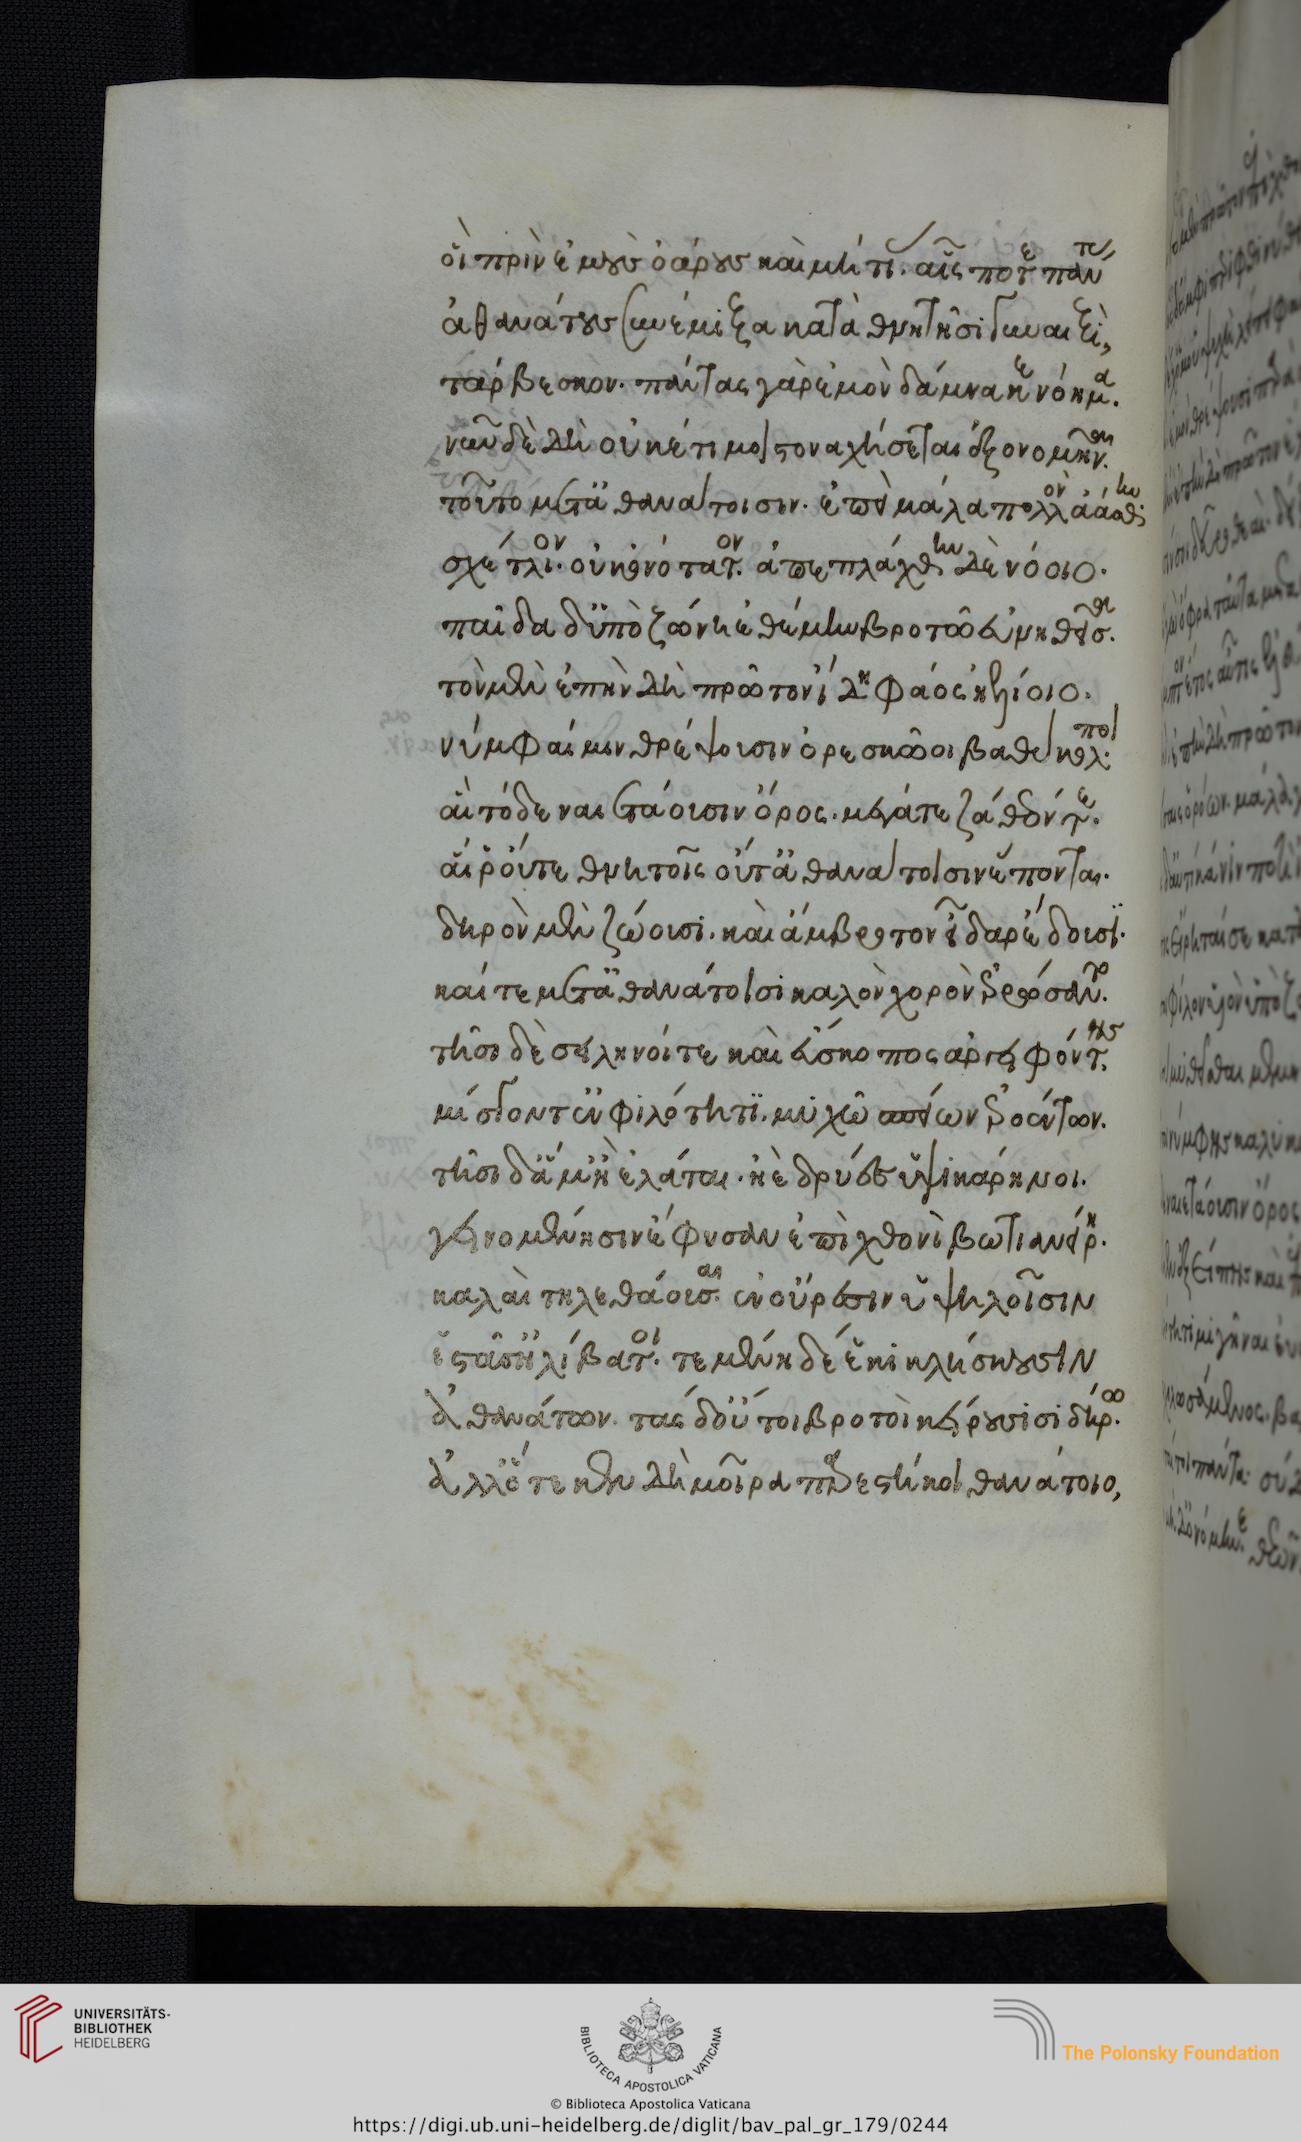 οἳ πρὶν ἐμοὺς ὀάρους καὶ μήτιας αἷς ποτε πάντας
ἀθανάτους συνέμιξα καταθνητῇσι γυναιξὶ,
τάρβεσκον. πάντας γὰρ ἐμὸν δάμνασκε νόημα.
νῦν δὲ δὴ οὐκέτι μοι στοναχήσεται ἐξονομῆναι.
τοῦτο μετ' ἀθανάτοισιν. ἐπεὶ μάλα πολλὸν ἀάσθην
σχέτλιον. οὐκ ὀνότατον. ἀπεπλάγχθην δὲ νόοιο.
παῖδα δ' ὑπὸ ζώνη ἐθέμην βροτῷ εὐνηθεῖσα.
τὸν μὲν ἐπὴν δὴ πρῶτον ἴδη φάος ἠελίοιο.
νύμφαι μιν θρέψουσιν ὀρεσκῷοι βαθύκολποι
αἳ τόδε ναιετάουσιν ὄρος. μέγα τε ζάθεόν τε.
αἵ ῥ' οὔτε θνητοῖς οὔτ' ἀθανάτοισιν ἕπονται.
δηρὸν μὲν ζώουσι. καὶ ἄμβροτον εἶδαρ ἔδουσι.
καί τε μετ' ἀθανάτοισι καλὸν χορὸν ἐρρώσαντο.
τῇσι δὲ σεληνοί τε καὶ εὔσκοπος ἀργειφόντης
μίσγοντ' ἐν φιλότητι. μυχῷ σπείων ἐροέντων.
τῇσι δ' ἅμ' ἢ ἐλάται. ἠὲ δρύες ὑψικάρηνοι.
γεινομένησιν ἔφυσαν ἐπὶ χθονὶ βωτιανείρη.
καλαὶ τηλεθάουσαι. ἐν οὔρεσιν ὑψηλοῖσιν
ἑστᾶσ' ἠλίβατοι. τεμένη δέ ἑ κικλήσκουσιν
ἀθανάτων. τὰς δ' οὔτοι βροτοὶ κείρουσι σιδήρω.
ἀλλ' ὅτε κεν δὴ μοῖρα παρεστήκοι θανάτοιο,
UNIVERSITÄTS-
BIBLIOTHEK
HEIDELBERG
BIBLIOTECA APOSTOLICA VATICANA
The Polonsky Foundation
© Biblioteca Apostolica Vaticana
https://digi.ub.uni-heidelberg.de/diglit/bav_pal_gr_179/0244